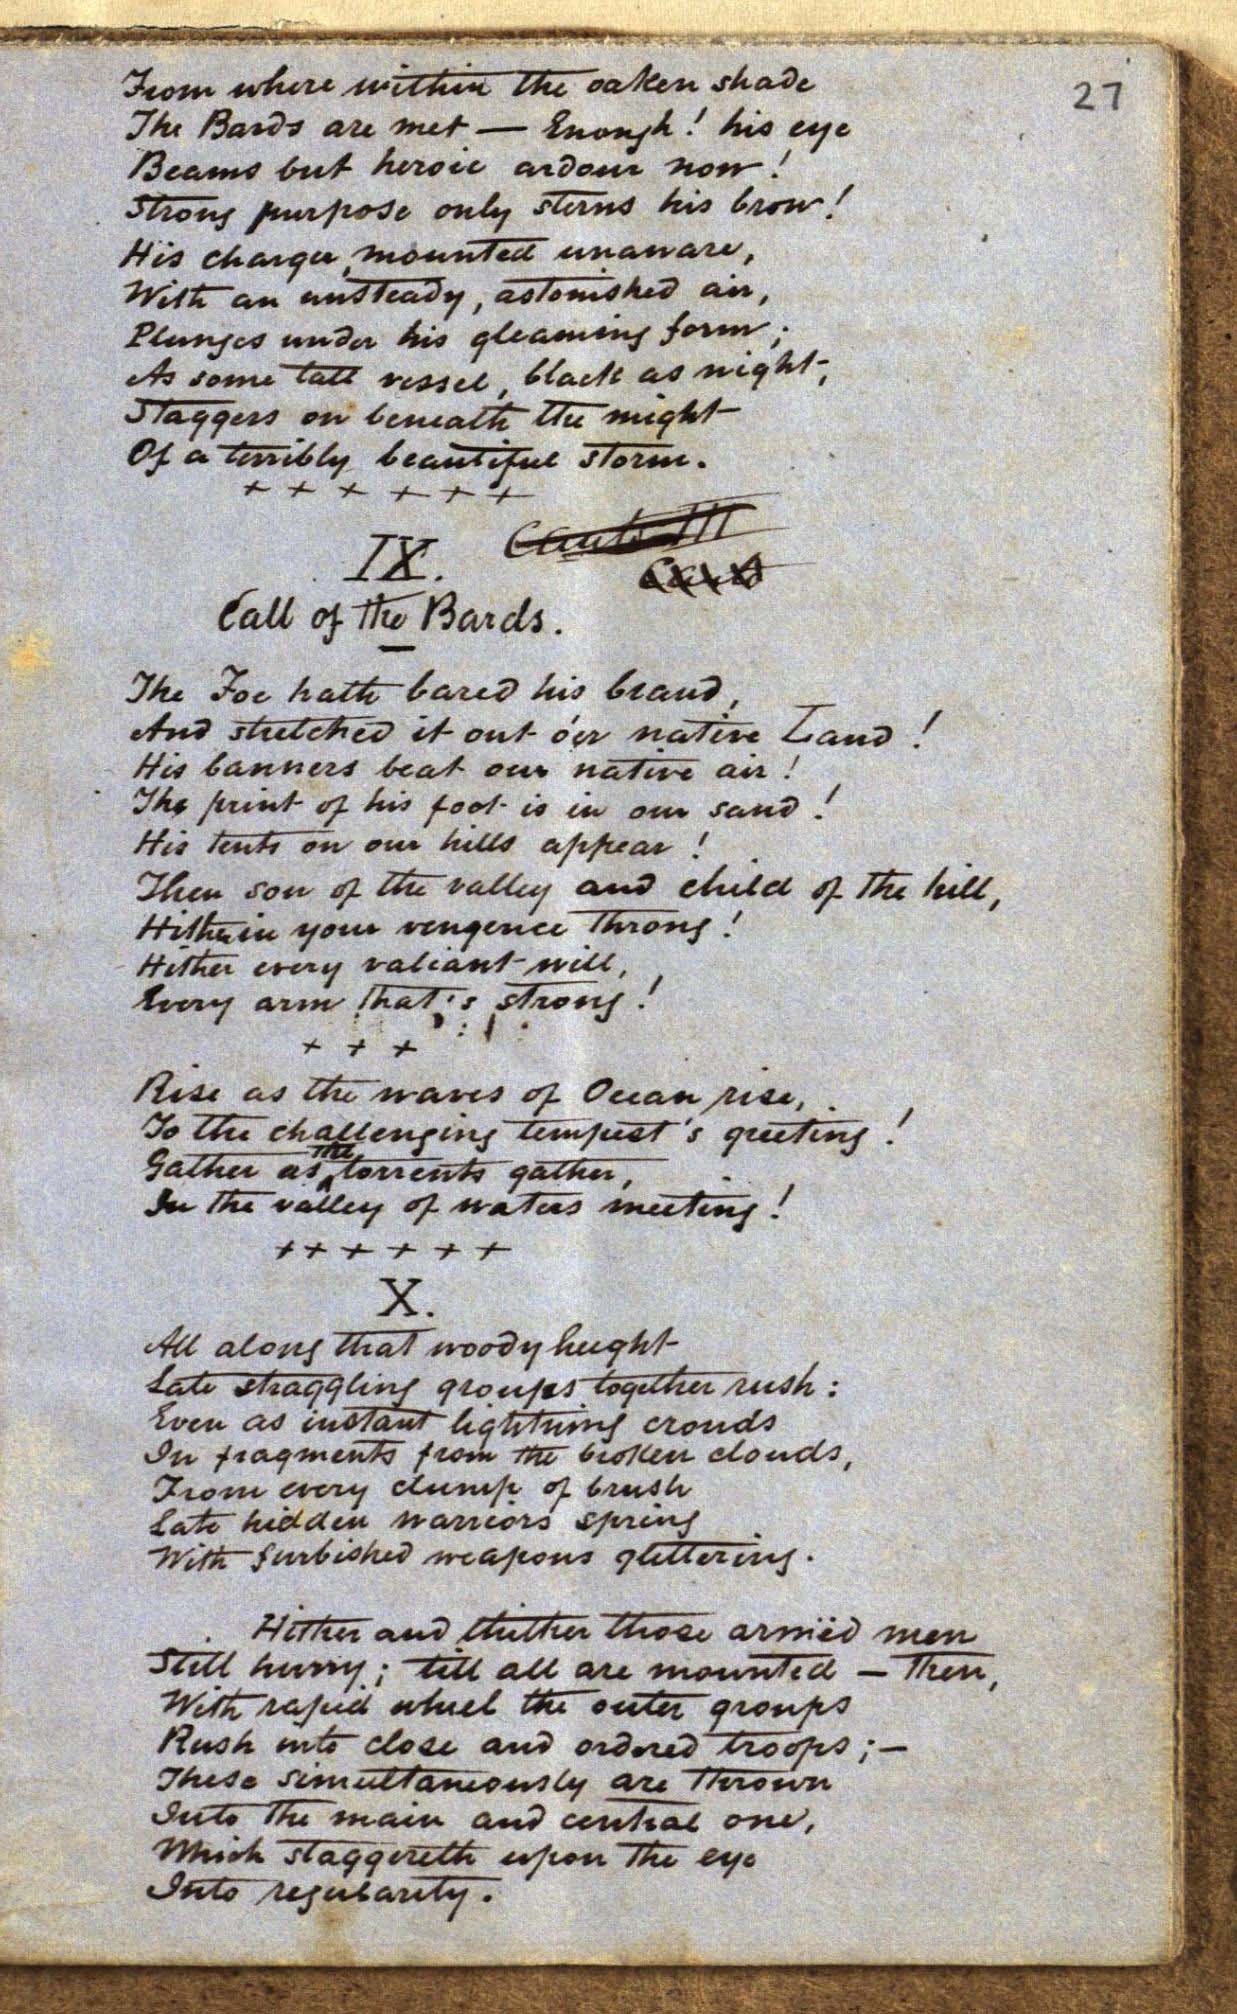 27
From where within the oaken shade
The Bards are met — Enough! his eye
Beams but heroic ardour now!
Strong purpose only sterns his brow!
His charger, mounted unaware,
With an unsteady, astonished air,
Plunges under his gleaming form;
As some tall vessel, black as night,
Staggers on beneath the might
Of a terribly beautiful storm.
+ + + + + +
Canto III
Canto
IX.
Call of the Bards.
The Foe hath bared his brand,
And stretched it out o'er native Land!
His banners beat our native air!
The print of his foot is in our sand!
His tents on our hills appear!
Then son of the valley and child of the hill,
Hither in your vengence throng!
Hither every valiant will,
Every arm that's strong!
+ + +
Rise as the waves of Ocean rise,
To the challenging tempest's greeting!
Gather as the torrents gather,
In the valley of waters meeting!
+ + + + + +
X.
All along that woody height
Late straggling groups together rush:
Even as instant lightning crouds
In fragments from the broken clouds,
From every clump of brush
Late hidden warriors spring
With furbished weapons glittering.
Hither and thither those armëd men
Still hurry; till all are mounted — Then,
With rapid wheel the outer groups
Rush into close and ordered troops; —
These simultaneously are thrown
Into the main and central one,
Which staggereth upon the eye
Into regularity.